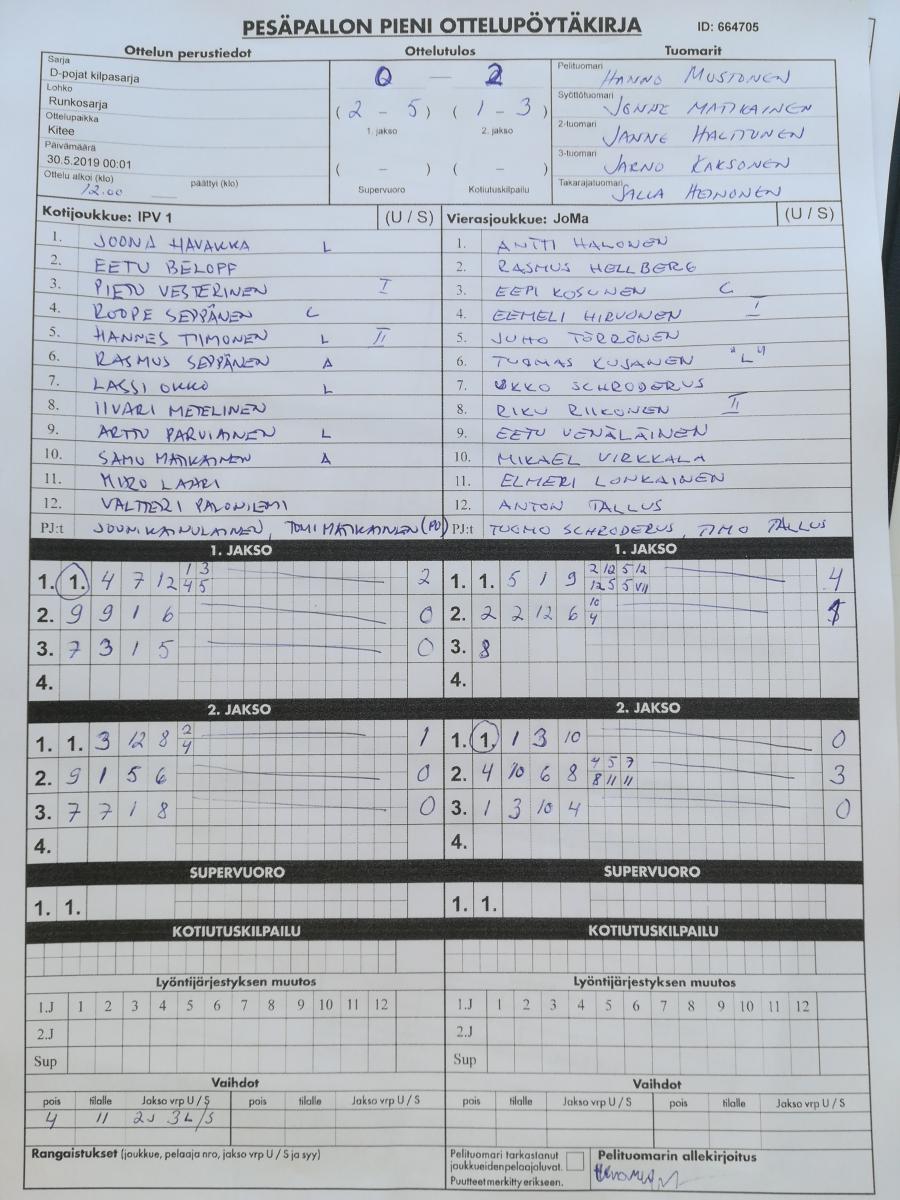 PESÄPALLON PIENI OTTELUPÖYTÄKIRJA
ID: 664705
Ottelun perustiedot
Sarja
D-pojat kilpasarja
Lohko
Runkosarja
Ottelupaikka
Kitee
Päivämäärä
30.5.2019 00:01
Ottelu alkoi (klo) päättyi (klo)
12.00
Ottelutulos
0 — 2
( 2 - 5 ) ( 1 - 3 )
1. jakso 2. jakso
( - ) ( - )
Supervuoro Kotiutuskilpailu
Tuomarit
Pelituomari HANNO MUSTONEN
Syöttötuomari JONNE MATIKAINEN
2-tuomari JANNE HALTTUNEN
3-tuomari JARNO KAKSONEN
Takarajatuomari JALLA HEINONEN
Kotijoukkue: IPV 1 (U / S)
1. JOONA HAVAKKA L
2. EETU BELOFF
3. PIETU VESTERINEN I
4. ROOPE SEPPÄNEN C
5. HANNES TIMONEN L II
6. RASMUS SEPPÄNEN A
7. LASSI OKKO L
8. IIVARI METELINEN
9. ARTTU PARVIAINEN L
10. SAMU MATIKAINEN A
11. MIRO LAARI
12. VALTTERI PALONIEMI
PJ:t JOUNI KAINULAINEN, TOMI MATIKAINEN (PO)
Vierasjoukkue: JoMa (U / S)
1. ANTTI HALONEN
2. RASMUS HELLBERG
3. EEPI KOSUNEN C
4. EEMELI HIRVONEN I
5. JUHO TÖRRÖNEN
6. TUOMAS KUSANEN "L"
7. UKKO SCHRODERUS
8. RIKU RIIKONEN II
9. EETU VENÄLÄINEN
10. MIKAEL VIRKKALA
11. ELMERI LONKAINEN
12. ANTON TALLUS
PJ:t TUOMO SCHRODERUS, TIMO TALLUS
1. JAKSO
1. 1. 4 7 12 1 3 2
4 5
2. 9 9 1 6 0
3. 7 3 1 5 0
4.
1. JAKSO
1. 1. 5 1 9 2 12 5 12 4
12 5 5 VII
2. 2 2 12 6 10 1
4
3. 8
4.
2. JAKSO
1. 1. 3 12 8 2 1
4
2. 9 1 5 6 0
3. 7 7 1 8 0
4.
2. JAKSO
1. 1. 1 3 10 0
2. 4 10 6 8 4 5 7 3
8 11 11
3. 1 3 10 4 0
4.
SUPERVUORO
1. 1.
SUPERVUORO
1. 1.
KOTIUTUSKILPAILU
KOTIUTUSKILPAILU
Lyöntijärjestyksen muutos
1.J 1 2 3 4 5 6 7 8 9 10 11 12
2.J
Sup
Lyöntijärjestyksen muutos
1.J 1 2 3 4 5 6 7 8 9 10 11 12
2.J
Sup
Vaihdot
pois tilalle Jakso vrp U / S pois tilalle Jakso vrp U / S
4 11 2J 3L/S
Vaihdot
pois tilalle Jakso vrp U / S pois tilalle Jakso vrp U / S
Rangaistukset (joukkue, pelaaja nro, jakso vrp U / S ja syy)
Pelituomari tarkastanut
joukkueiden pelaajaluvat.
Puutteet merkitty erikseen.
Pelituomarin allekirjoitus